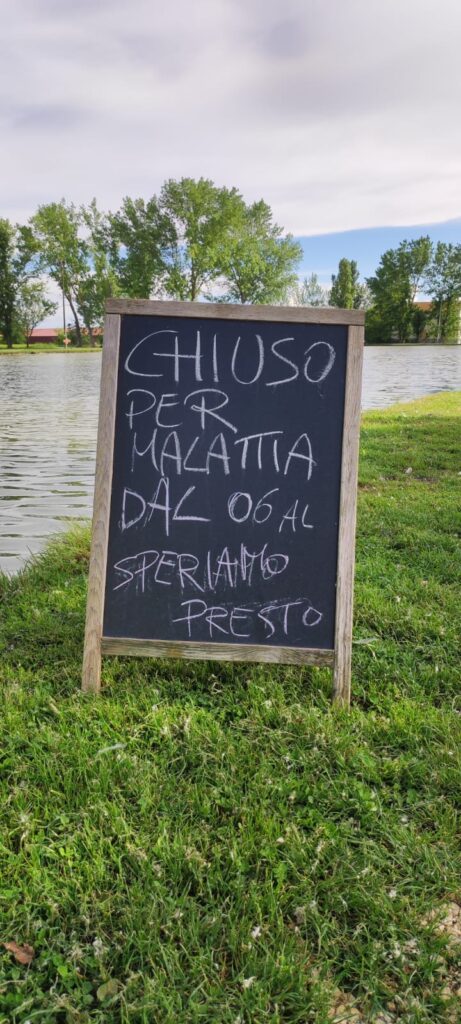 CHIUSO
PER
MALATTIA
DAL 06 AL
SPERIAMO
PRESTO